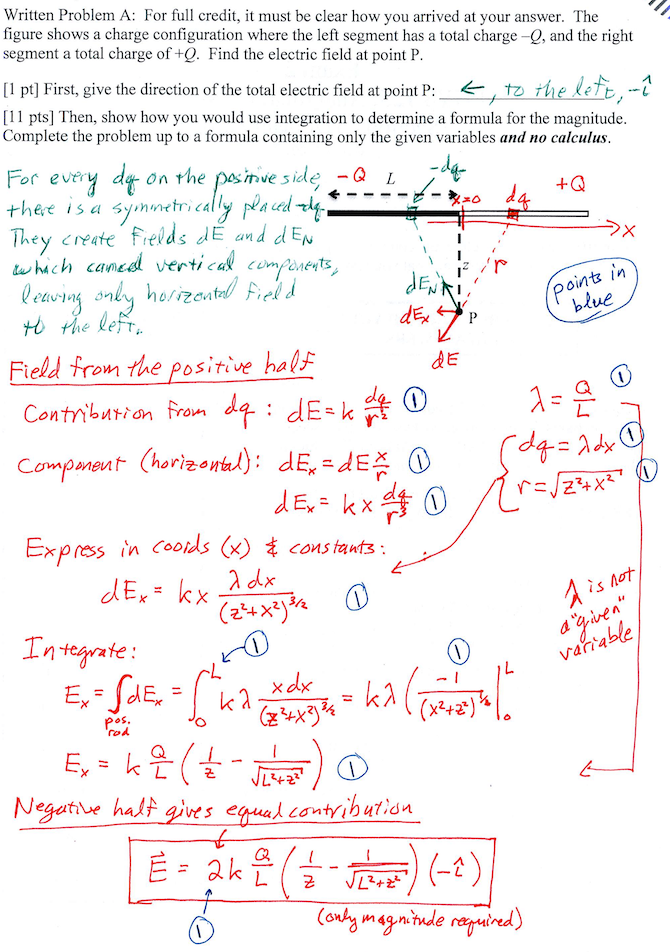 Written Problem A: For full credit, it must be clear how you arrived at your answer. The
figure shows a charge configuration where the left segment has a total charge –Q, and the right
segment a total charge of +Q. Find the electric field at point P.
[1 pt] First, give the direction of the total electric field at point P: ←, to the left, -î
[11 pts] Then, show how you would use integration to determine a formula for the magnitude.
Complete the problem up to a formula containing only the given variables and no calculus.
For every dq on the positive side,
there is a symmetrically placed -dq.
They create fields dE and dE_N
which cancel vertical components,
leaving only horizontal field
to the left.
-Q L -dq
x=0 dq +Q
→x
z r
dE_N
dE_x P
dE
points in
blue
Field from the positive half
Contribution from dq : dE = k dq/r² ①
λ = Q/L ①
Component (horizontal): dE_x = dE x/r ①
dq = λdx ①
dE_x = kx dq/r³ ①
r = √(z²+x²) ①
Express in coords (x) & constants:
dE_x = kx λdx/(z²+x²)^(3/2) ①
λ is not
a "given"
variable
Integrate: ① ①
E_x = ∫dE_x = ∫₀^L kλ xdx/(z²+x²)^(3/2) = kλ ( -1/(x²+z²)^(1/2) ) |₀^L
pos.
rod
E_x = k Q/L ( 1/z - 1/√(L²+z²) ) ①
Negative half gives equal contribution
E⃗ = 2k Q/L ( 1/z - 1/√(L²+z²) ) (-î)
①
(only magnitude required)